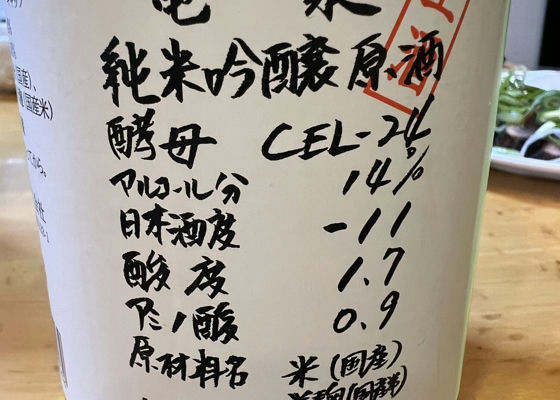 亀泉
純米吟醸原酒
酵母 CEL-24
アルコール分 14%
日本酒度 -11
酸度 1.7
アミノ酸 0.9
原材料名 米(国産)
米麹(国産米)